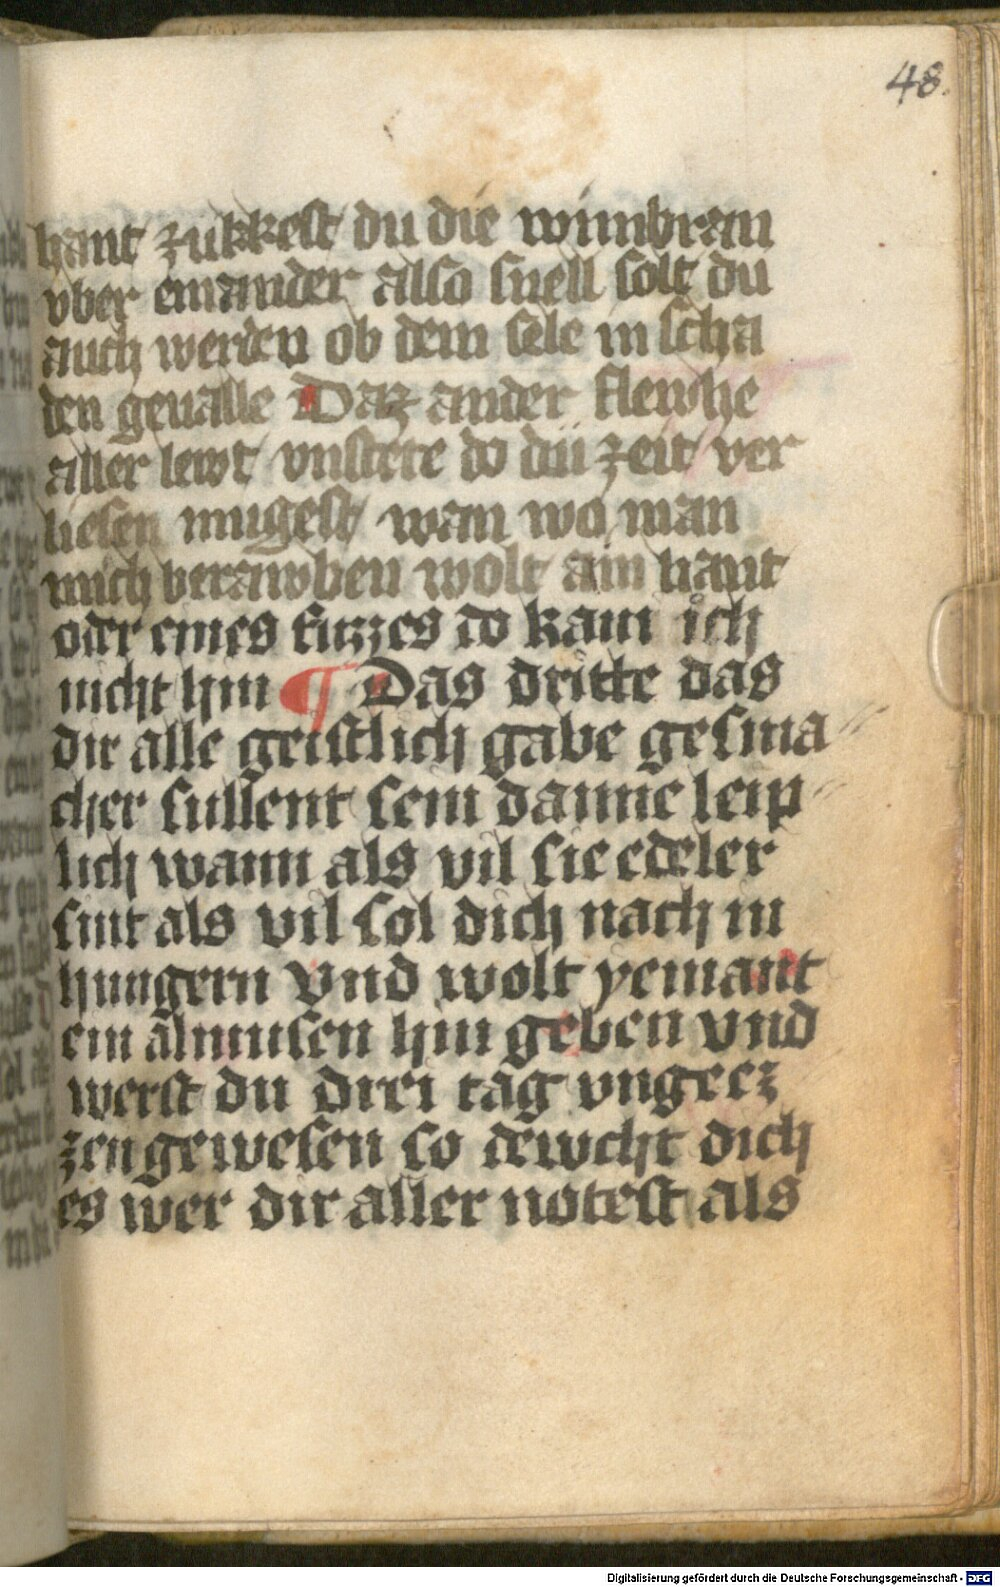 48.
hant zukkest du die winnbran
vber einander also snell solt du
auch werden ob dem sele in scha
den geualle Daz ander flewhe
aller lewt vnstete do dü zeit ver
liesen mugest wan wo man
mich berawben wolt ain hant
oder eines fuzzes do kam ich
nicht hin ¶ Das dritte das
dir alle geistlich gabe gesma
cher sullent sein danne leip
lich wann als vil sie edeler
sint als vil sol dich nach in
hungern vnd wolt yemant
ein almusen hin geben vnd
werst du drei tag vngecz
zen gewesen so dewcht dich
es wer dir aller notest als
Digitalisierung gefördert durch die Deutsche Forschungsgemeinschaft - DFG